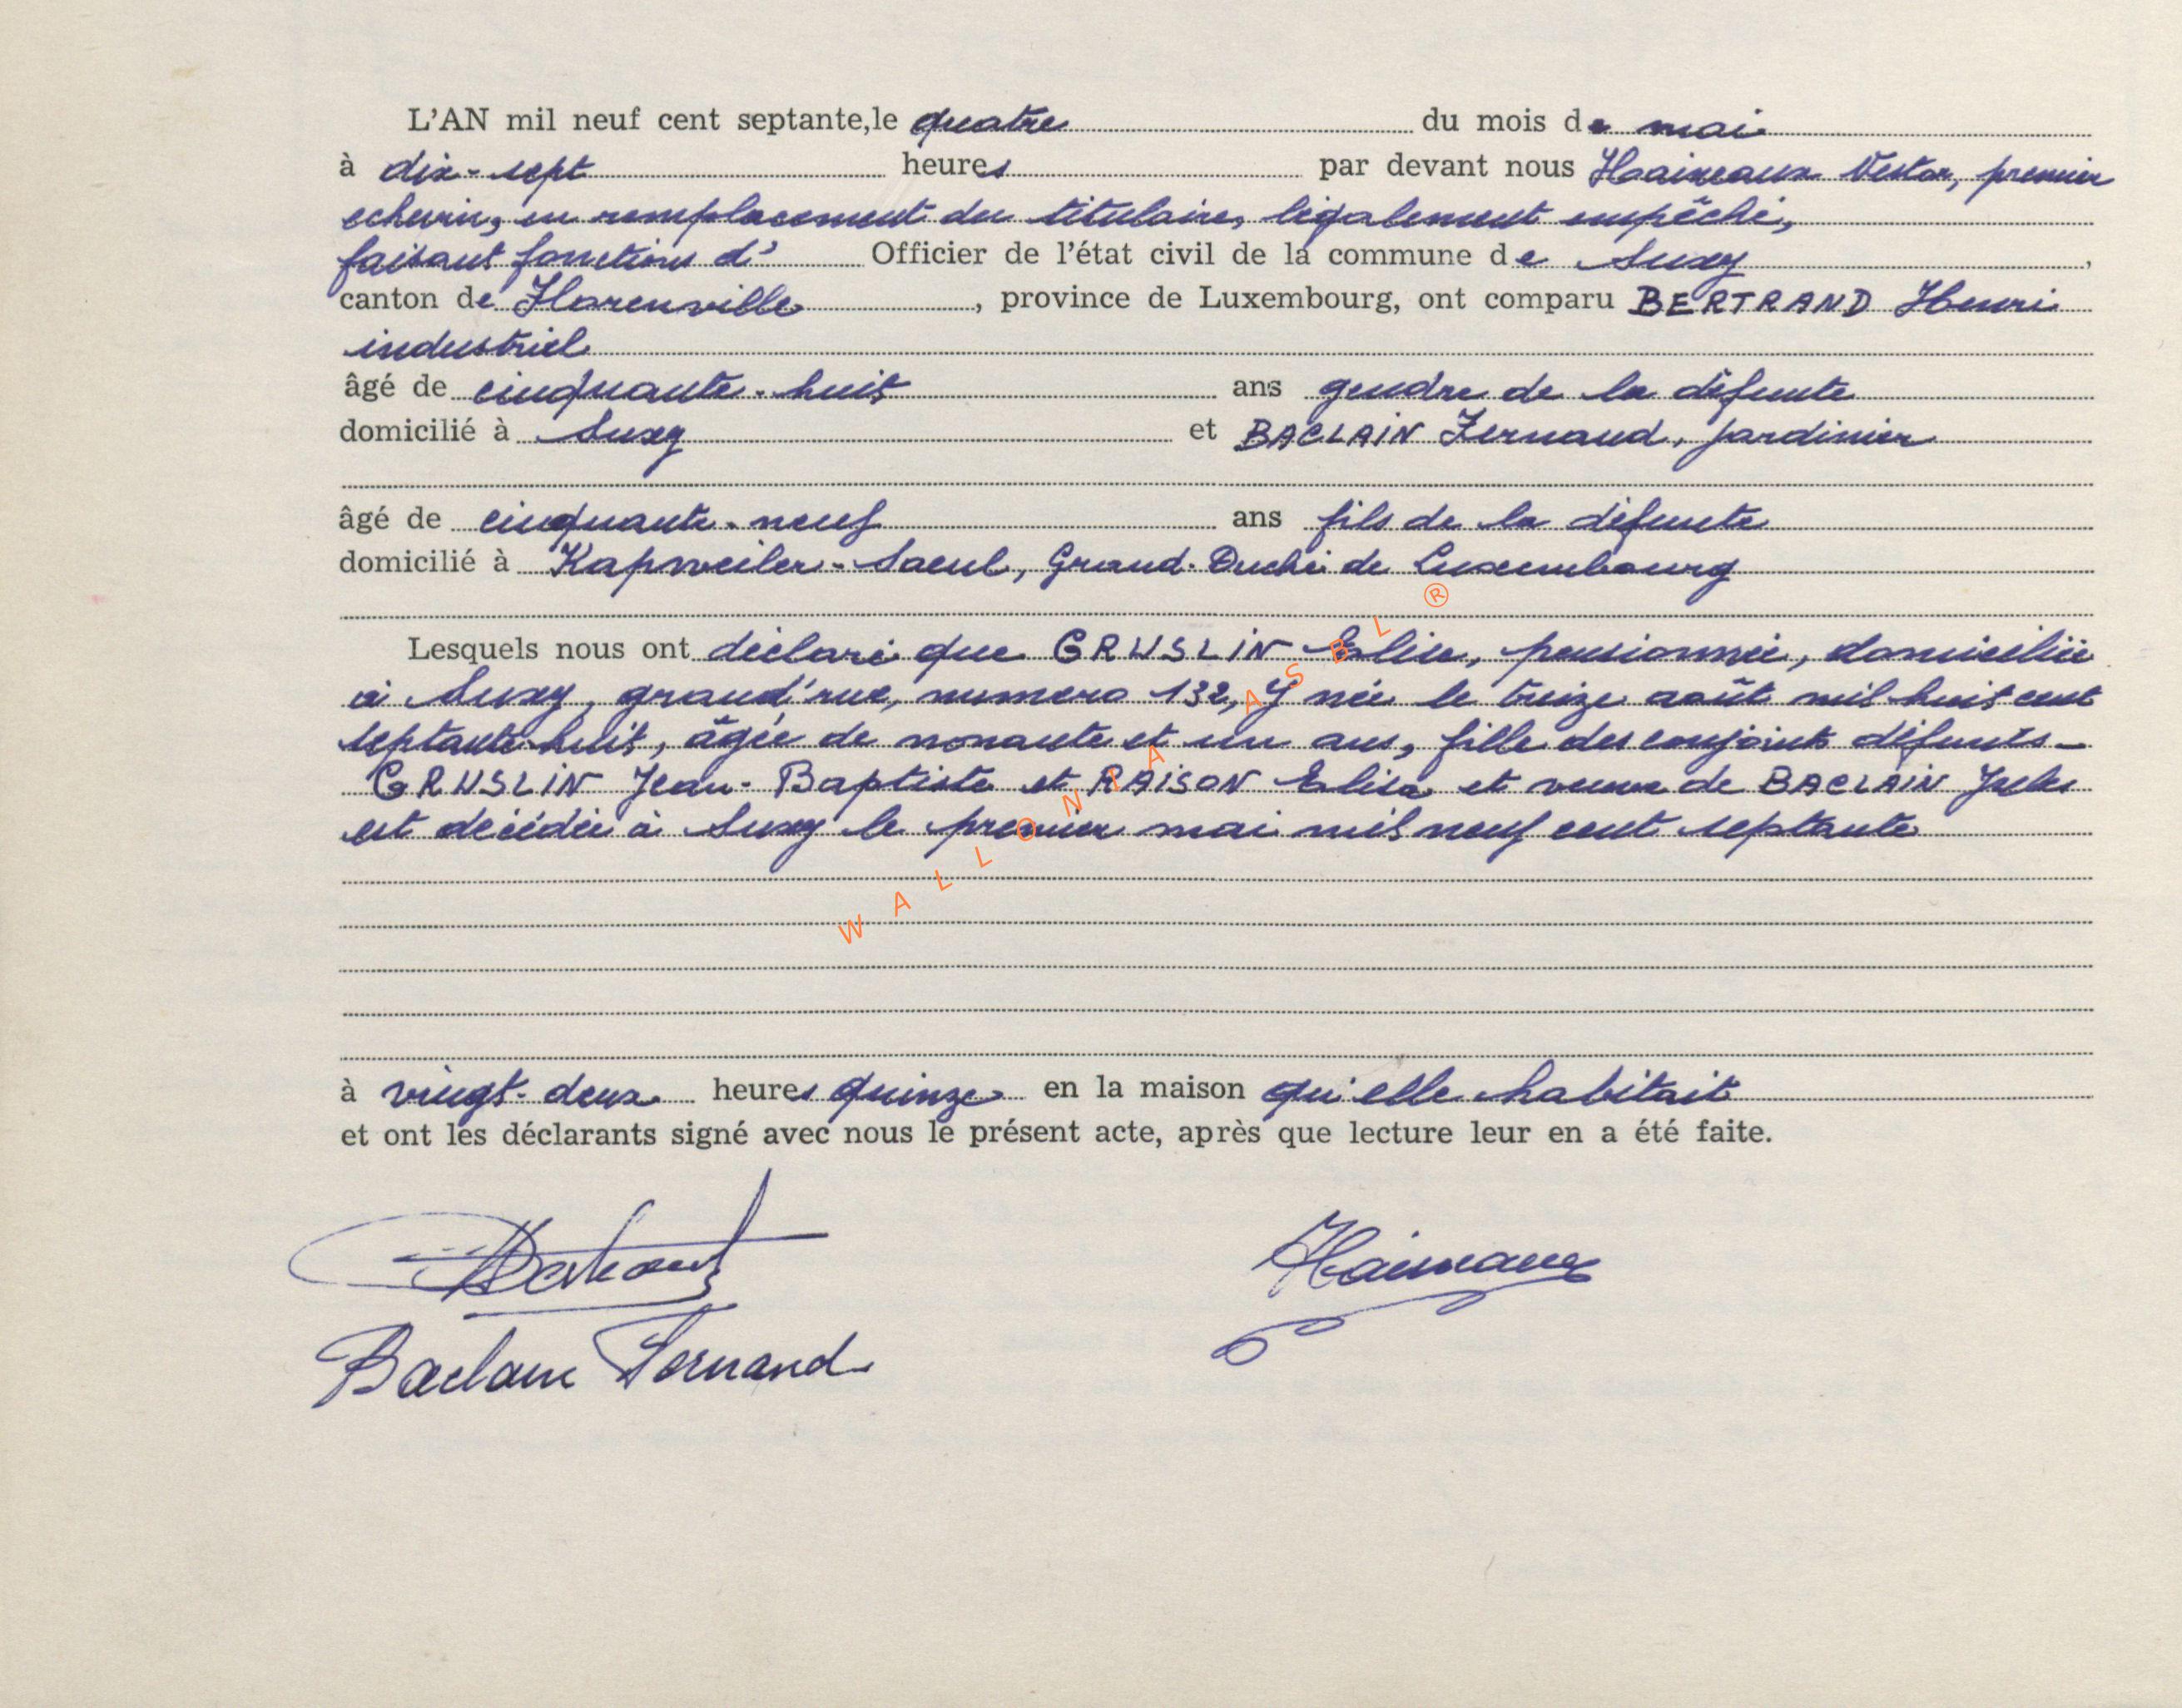 L'AN mil neuf cent septante, le quatre du mois de mai
à dix-sept heures par devant nous Haineaux Nestor, premier
echevin, en remplacement du titulaire, légalement empêché,
faisant fonctions d' Officier de l'état civil de la commune de Suxy,
canton de Florenville, province de Luxembourg, ont comparu BERTRAND Henri
industriel
âgé de cinquante-huit ans gendre de la défunte
domicilié à Suxy et BACLAIN Fernand, jardinier
âgé de cinquante-neuf ans fils de la défunte
domicilié à Kapweiler-Saeul, Grand-Duché de Luxembourg
Lesquels nous ont déclaré que GRUSLIN Elise, pensionnée, domiciliée
à Suxy, grand'rue, numero 132, y née le treize août mil huit cent
septante-huit, âgée de nonante et un ans, fille des conjoints défunts
GRUSLIN Jean-Baptiste et RAISON Elisa et veuve de BACLAIN Jules
est décédée à Suxy le premier mai mil neuf cent septante
WALLONIA ASBL ®
à vingt-deux heures quinze en la maison qu'elle habitait
et ont les déclarants signé avec nous le présent acte, après que lecture leur en a été faite.
Haineaux
Baclain Fernand